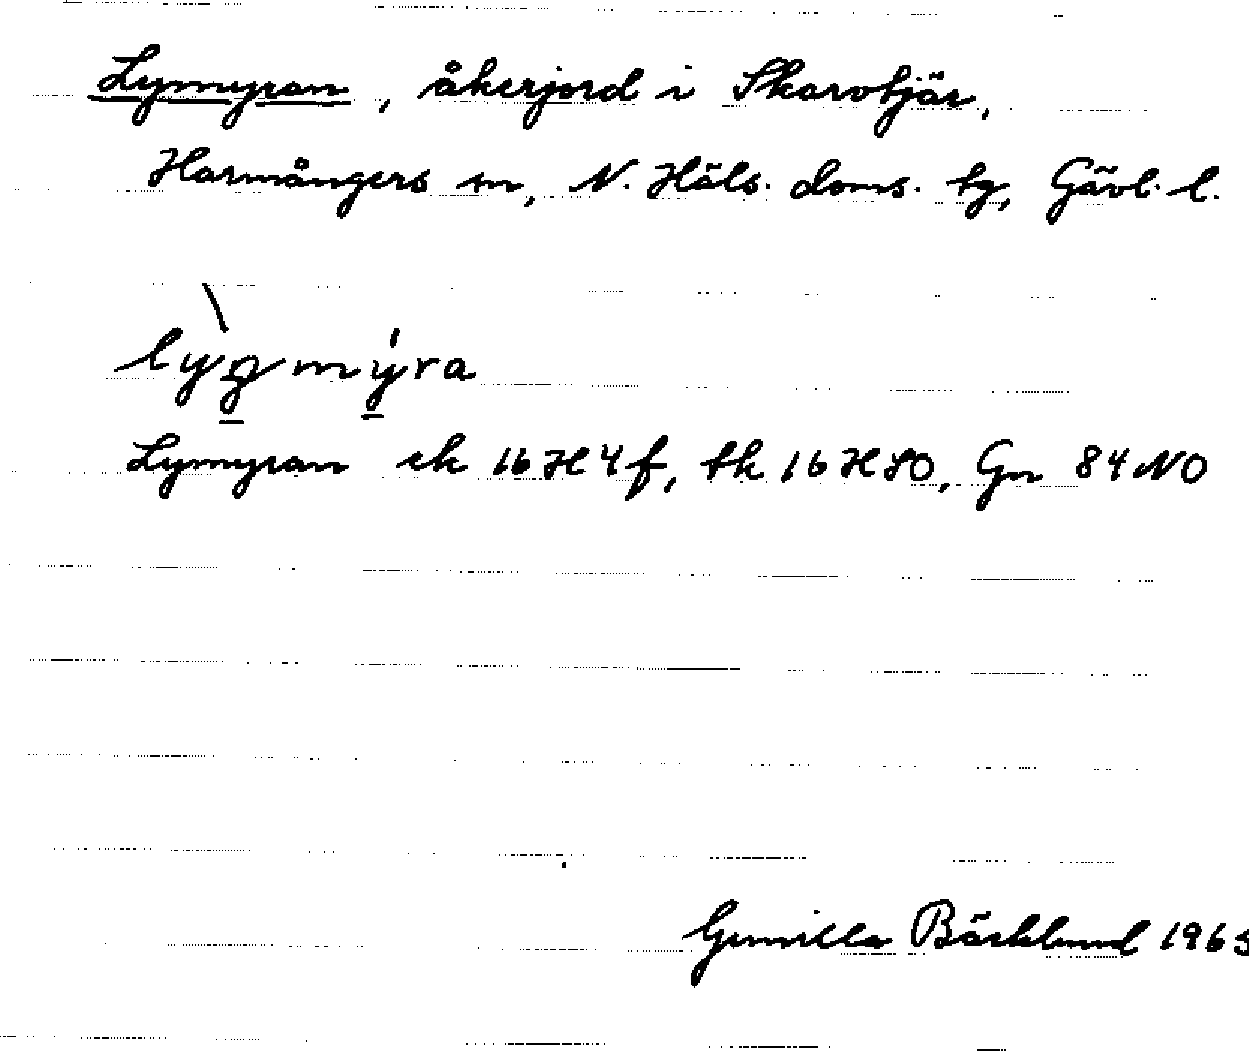 Lymyran, åkerjord i Skarvtjär,
Harmångers sn, N. Häls. doms. tg, Gävl. l.
lỳg mýra
Lymyran ek 16 H 4 f, tk 16 H SO, Gn 84 NO
Gunilla Bäcklund 1965